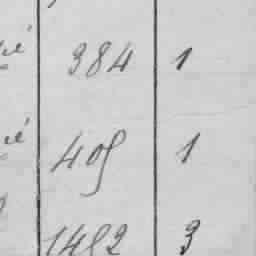 384 1
405 1
1452 3